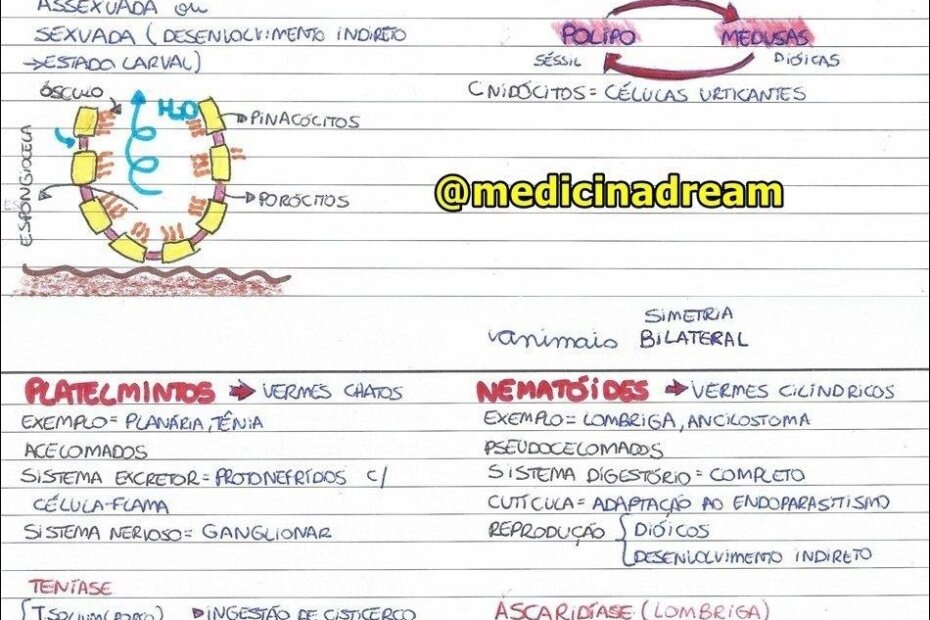 ASSEXUADA ou
SEXUADA (DESENVOLVIMENTO INDIRETO
→ESTADO LARVAL)
ÓSCULO
H2O
PINACÓCITOS
ESPONGIOCELA
PORÓCITOS
PÓLIPO
MEDUSAS
SÉSSIL
DIÓICAS
CNIDÓCITOS = CÉLULAS URTICANTES
@medicinadream
animais SIMETRIA BILATERAL
PLATELMINTOS → VERMES CHATOS
EXEMPLO = PLANÁRIA, TÊNIA
ACELOMADOS
SISTEMA EXCRETOR = PROTONEFRÍDOS C/
CÉLULA-FLAMA
SISTEMA NERVOSO = GANGLIONAR
TENÍASE
T. SOLIUM (PORCO) INGESTÃO DE CISTICERCO
NEMATÓIDES → VERMES CILÍNDRICOS
EXEMPLO = LOMBRIGA, ANCILOSTOMA
PSEUDOCELOMADOS
SISTEMA DIGESTÓRIO = COMPLETO
CUTÍCULA = ADAPTAÇÃO AO ENDOPARASITISMO
REPRODUÇÃO { DIÓICOS
DESENVOLVIMENTO INDIRETO
ASCARIDÍASE (LOMBRIGA)